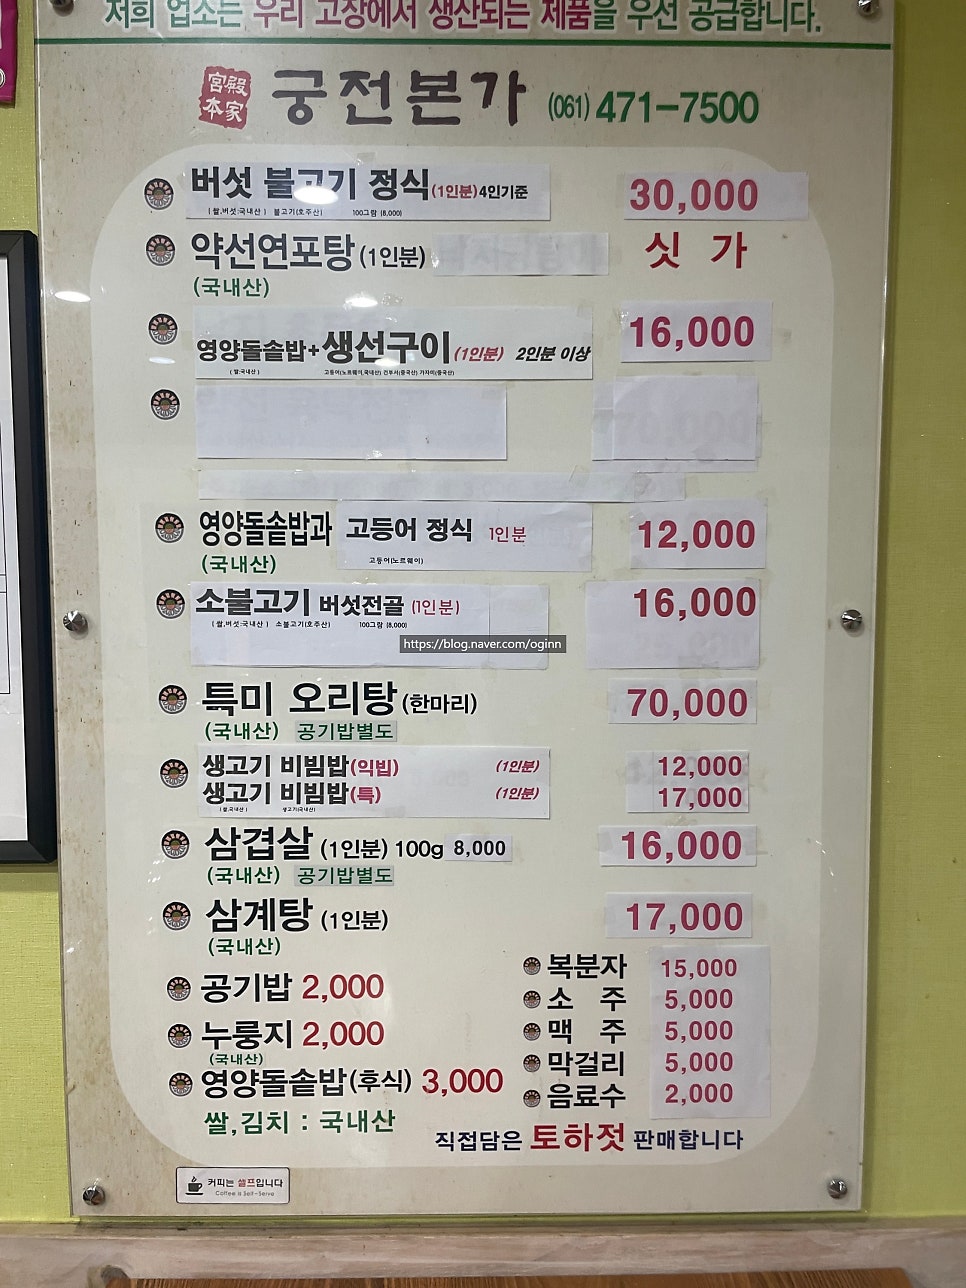 저희 업소는 우리 고장에서 생산되는 제품을 우선 공급합니다.
宮殿本家 궁전본가 (061) 471-7500
버섯 불고기 정식 (1인분) 4인기준 30,000
(쌀,버섯:국내산) 불고기(호주산) 100그람 (8,000)
약선연포탕 (1인분) 싯 가
(국내산)
영양돌솥밥+생선구이 (1인분) 2인분 이상 16,000
(쌀:국내산) 고등어(노르웨이,국내산) 가자미(중국산)
영양돌솥밥과 고등어 정식 1인분 12,000
(국내산) 고등어(노르웨이)
소불고기 버섯전골 (1인분) 16,000
(쌀,버섯:국내산) 소불고기(호주산) 100그람 (8,000)
https://blog.naver.com/oginn
특미 오리탕 (한마리) 70,000
(국내산) 공기밥별도
생고기 비빔밥(익빕) (1인분) 12,000
생고기 비빔밥(특) (1인분) 17,000
(쌀:국내산) 생고기(국내산)
삼겹살 (1인분) 100g 8,000 16,000
(국내산) 공기밥별도
삼계탕 (1인분) 17,000
(국내산)
공기밥 2,000
누룽지 2,000
(국내산)
영양돌솥밥(후식) 3,000
쌀,김치 : 국내산
복분자 15,000
소 주 5,000
맥 주 5,000
막걸리 5,000
음료수 2,000
직접담은 토하젓 판매합니다
커피는 셀프입니다
Coffee is Self-Serve